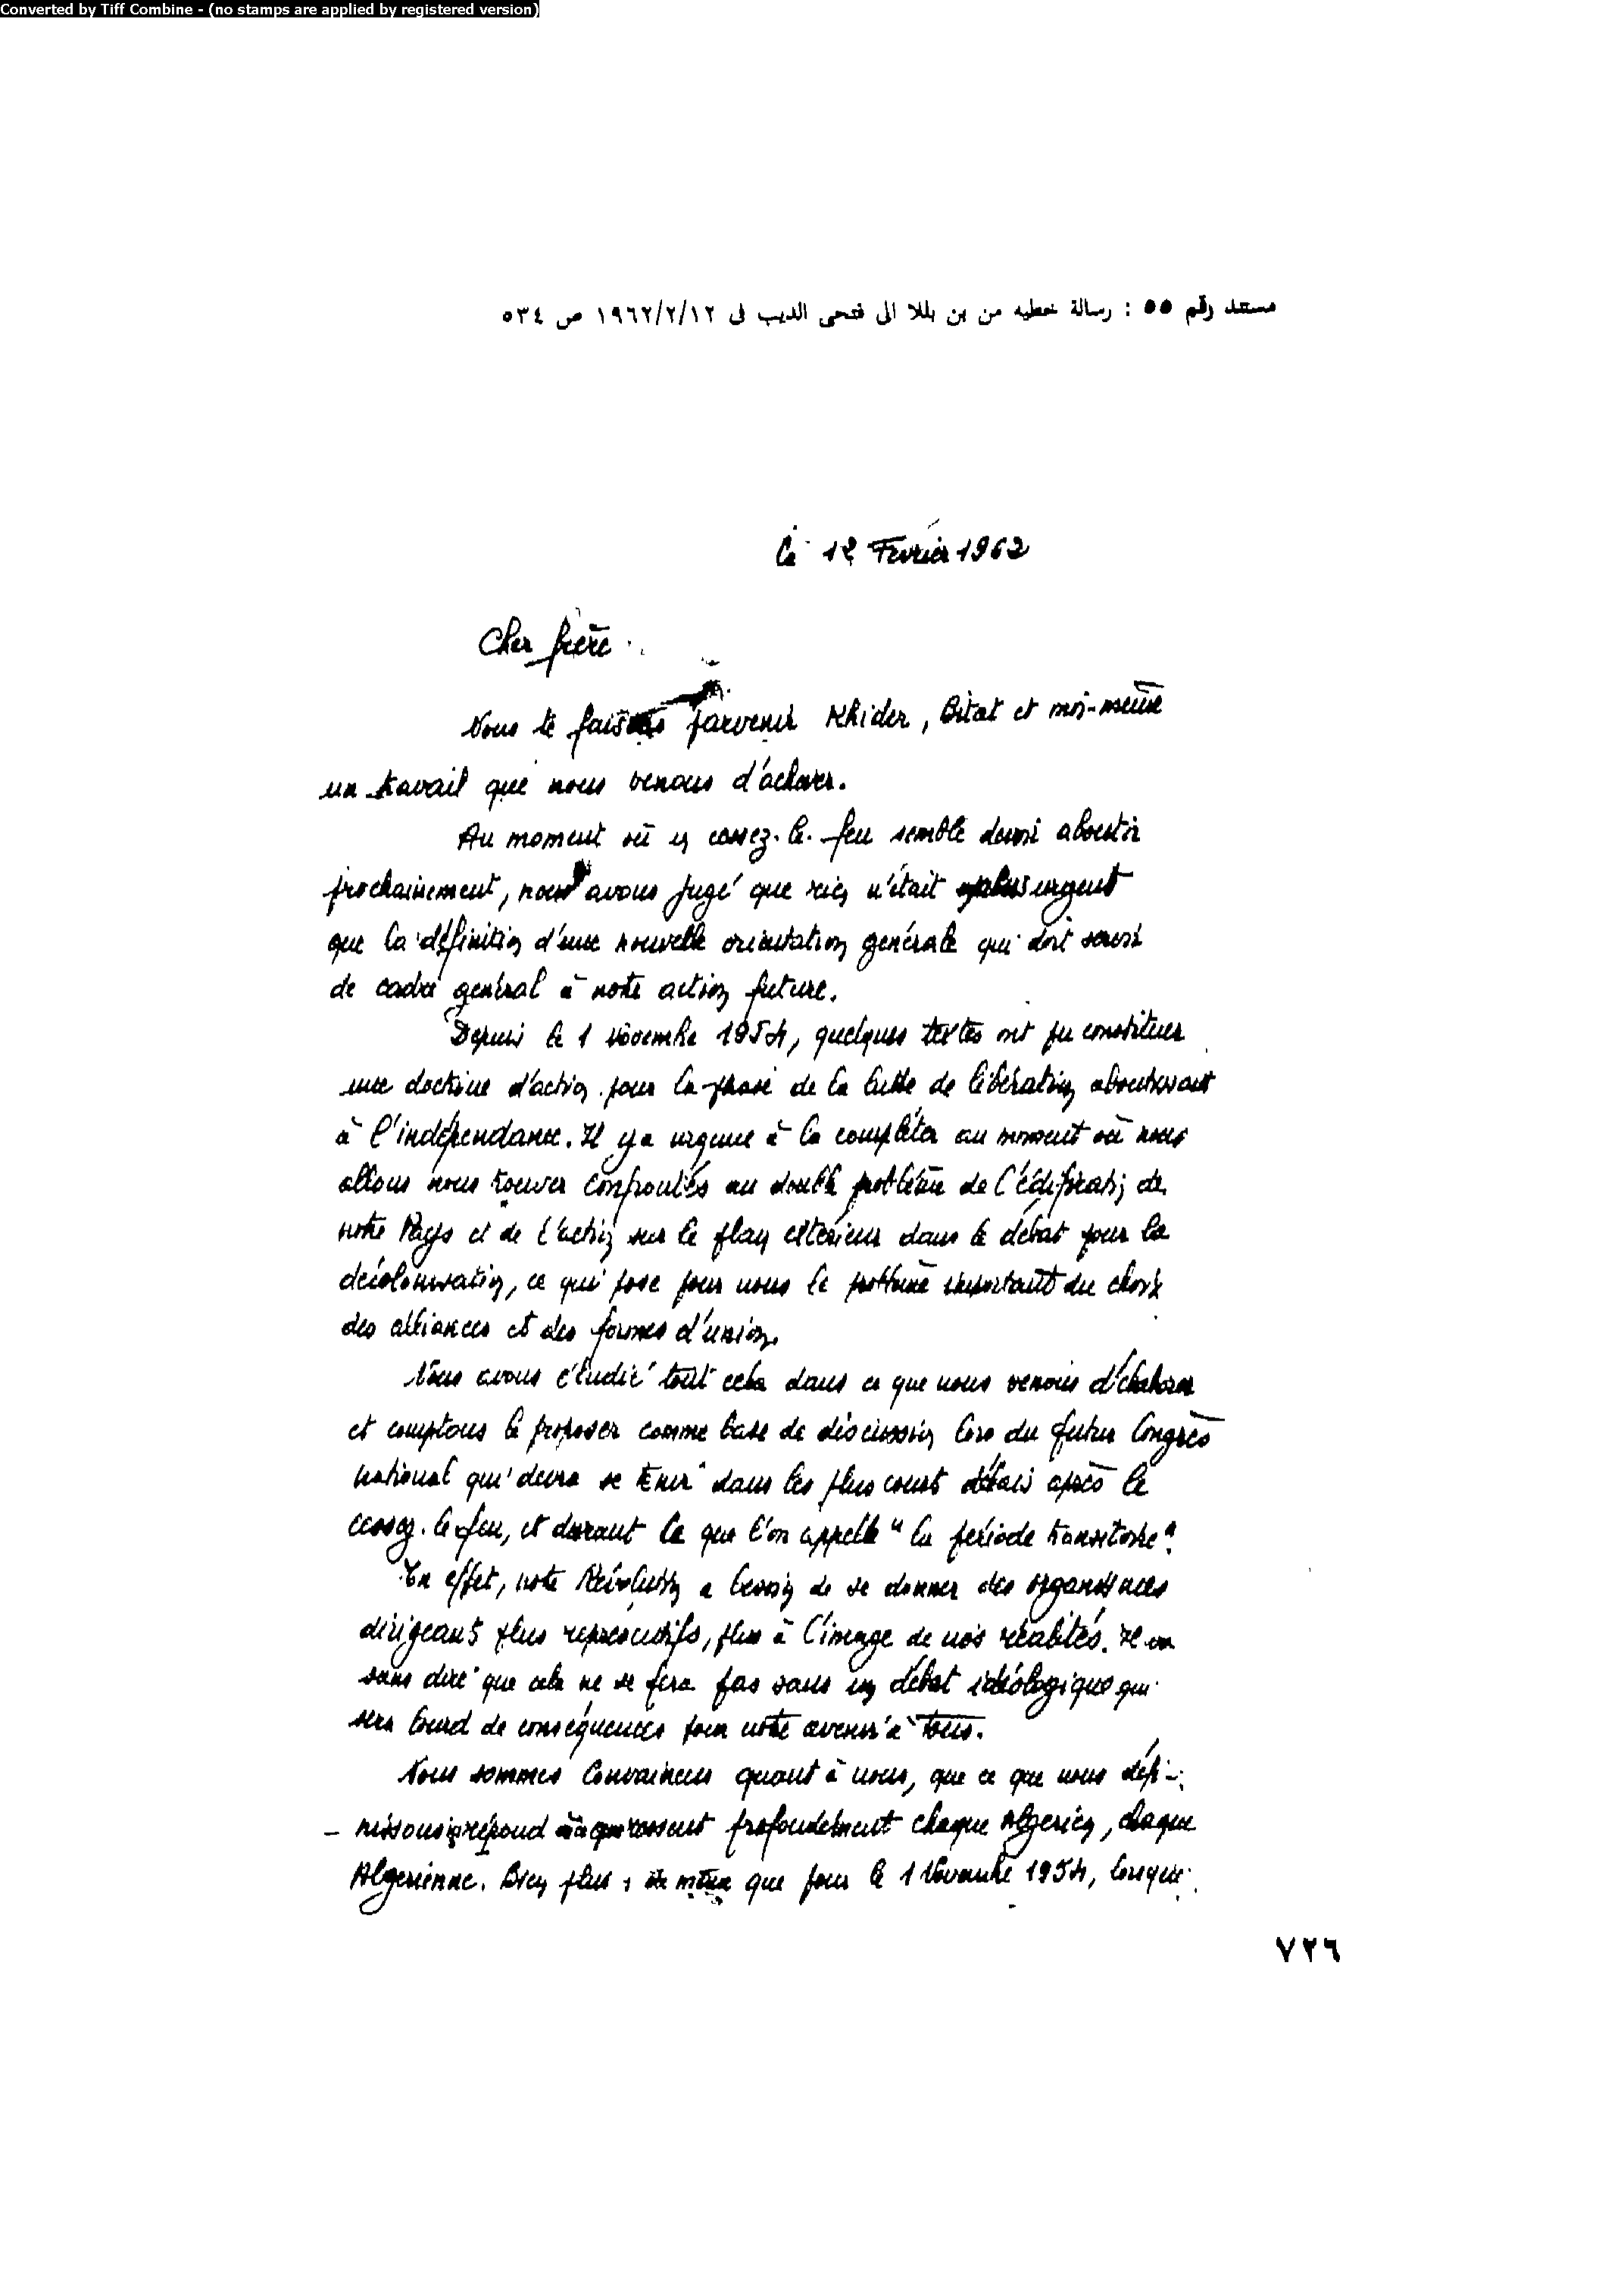 Converted by Tiff Combine - (no stamps are applied by registered version)
مستند رقم ٥٥ : رسالة خطيه من بن بللا الى فتحى الديب فى ١٩٦٢/٢/١٢ ص ٥٣٤
Le 12 Fevrier 1962
Cher frère
Nous te faisons parvenir Khider, Bitat et moi-même
un travail que nous venons d'achever.
Au moment où un cessez-le-feu semble devoir aboutir
prochainement, nous avons jugé que rien n'était plus urgent
que la définition d'une nouvelle orientation générale qui doit servir
de cadre général à notre action future.
Depuis le 1 Novembre 1954, quelques textes ont pu constituer
une doctrine d'action pour la phase de la lutte de libération aboutissant
à l'indépendance. Il y a urgence à la compléter au moment où nous
allons nous trouver confrontés au double problème de l'édification de
notre Pays et de l'action sur le plan extérieur dans le débat pour la
décolonisation, ce qui pose pour nous le problème important du choix
des alliances et des formes d'union.
Nous avons étudié tout cela dans ce que nous venons d'élaborer
et comptons le proposer comme base de discussion lors du futur Congrès
national qui devra se tenir dans les plus courts délais après le
cessez-le-feu, et durant ce que l'on appelle "la période transitoire".
En effet, notre Révolution a besoin de se donner des organismes
dirigeants plus représentatifs, plus à l'image de nos réalités. Il va
sans dire que cela ne se fera pas sans un débat idéologique qui
sera lourd de conséquences pour notre avenir à tous.
Nous sommes convaincus quant à nous, que ce que nous défi-
-nissons répond à ce que ressent profondément chaque Algérien, chaque
Algérienne. Bien plus, de même que pour le 1 Novembre 1954, lorsque
٧٢٦